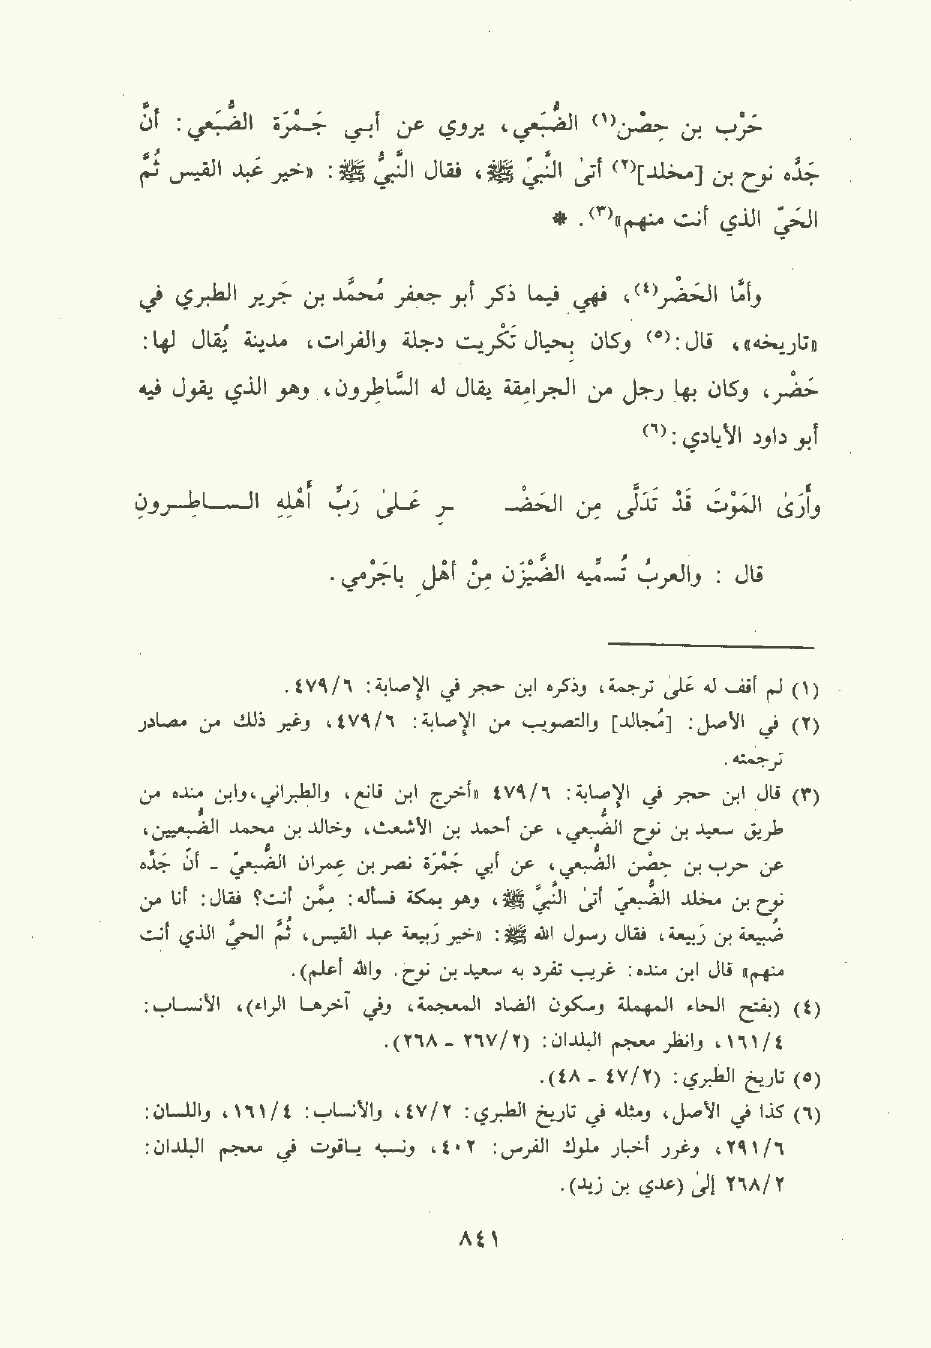 حَرْب بن حِصْن(١) الضُّبَعي، يروي عن أبي جَمْرَة الضُّبَعي: أنَّ
جَدَّه نوح بن [مخلد](٢) أتىٰ النَّبيَّ ﷺ، فقال النَّبيُّ ﷺ: «خير عَبد القيس ثُمَّ
الحَيّ الذي أنت منهم»(٣). *
وأمَّا الحَضْر(٤)، فهي فيما ذكر أبو جعفر مُحمَّد بن جَرير الطبري في
«تاريخه»، قال:(٥) وكان بِحِيال تَكْريت دجلة والفرات، مدينة يُقال لها:
حَضْر، وكان بها رجل من الجرامِقة يقال له السَّاطِرون، وهو الذي يقول فيه
أبو داود الأيادي:(٦)
وأَرَىٰ المَوْتَ قَدْ تَدَلَّى مِن الحَضْـ ـرِ عَـلىٰ رَبِّ أَهْلِهِ الـسـاطِـرونِ
قال: والعربُ تُسمِّيه الضَّيْزَن مِنْ أهْلِ باجَرْمي.
(١) لم أقف له عَلىٰ ترجمة، وذكره ابن حجر في الإصابة: ٤٧٩/٦.
(٢) في الأصل: [مُجالد] والتصويب من الإصابة: ٤٧٩/٦، وغير ذلك من مصادر
ترجمته.
(٣) قال ابن حجر في الإصابة: ٤٧٩/٦ «أخرج ابن قانع، والطبراني، وابن منده من
طريق سعيد بن نوح الضُبعي، عن أحمد بن الأشعث، وخالد بن محمد الضُبعيين،
عن حرب بن حِصْن الضُبعي، عن أبي جَمْرَة نصر بن عمران الضُبعيّ - أنَّ جَدَّه
نوح بن مخلد الضُبعيّ أتىٰ النَّبيَّ ﷺ، وهو بمكة فسأله: مِمَّن أنت؟ فقال: أنا من
ضُبيعة بن رَبيعة، فقال رسول الله ﷺ: «خير رَبيعة عبد القيس، ثُمَّ الحَيّ الذي أنت
منهم» قال ابن منده: غريب تفرد به سعيد بن نوح. والله أعلم).
(٤) (بفتح الحاء المهملة وسكون الضاد المعجمة، وفي آخرها الراء)، الأنساب:
١٦١/٤، وانظر معجم البلدان: (٢٦٧/٢ - ٢٦٨).
(٥) تاريخ الطبري: (٤٧/٢ - ٤٨).
(٦) كذا في الأصل، ومثله في تاريخ الطبري: ٤٧/٢، والأنساب: ١٦١/٤، واللسان:
٢٩١/٦، وغرر أخبار ملوك الفرس: ٤٠٢، ونسبه ياقوت في معجم البلدان:
٢٦٨/٢ إلىٰ (عدي بن زيد).
٨٤١